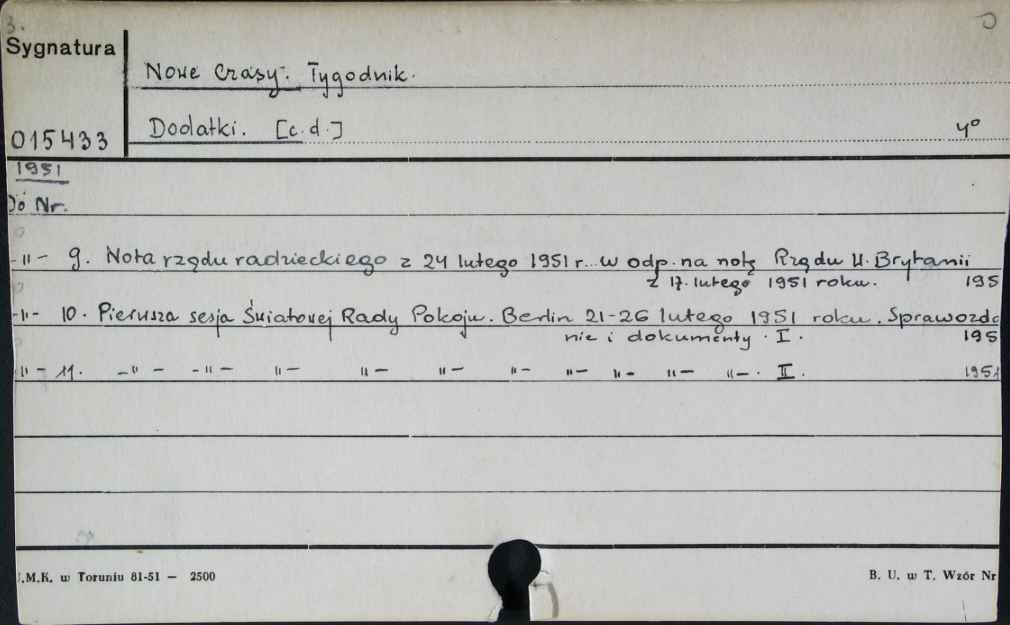 3.
Sygnatura
Nowe Czasy. Tygodnik.
015433
Dodatki. [c.d.]
4°
1951
Do Nr.
-"- 9. Nota rządu radzieckiego z 24 lutego 1951 r. w odp. na notę Rządu W. Brytanii
z 17. lutego 1951 roku. 195
-"- 10. Pierwsza sesja Światowej Rady Pokoju. Berlin 21-26 lutego 1951 roku. Sprawozda
nie i dokumenty. I. 195
"- 11. -"- -"- "- "- "- "- "- "- "- "-. II. 1951
.M.K. w Toruniu 81-51 — 2500
B. U. w T. Wzór Nr